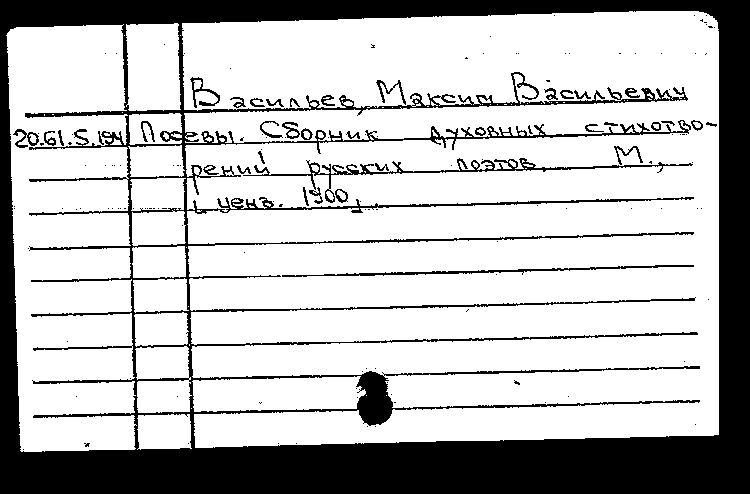 Васильев, Максим Васильевич
20.61.5.194 Посевы. Сборник духовных стихотво-
рений русских поэтов. М.,
[ценз. 1900].